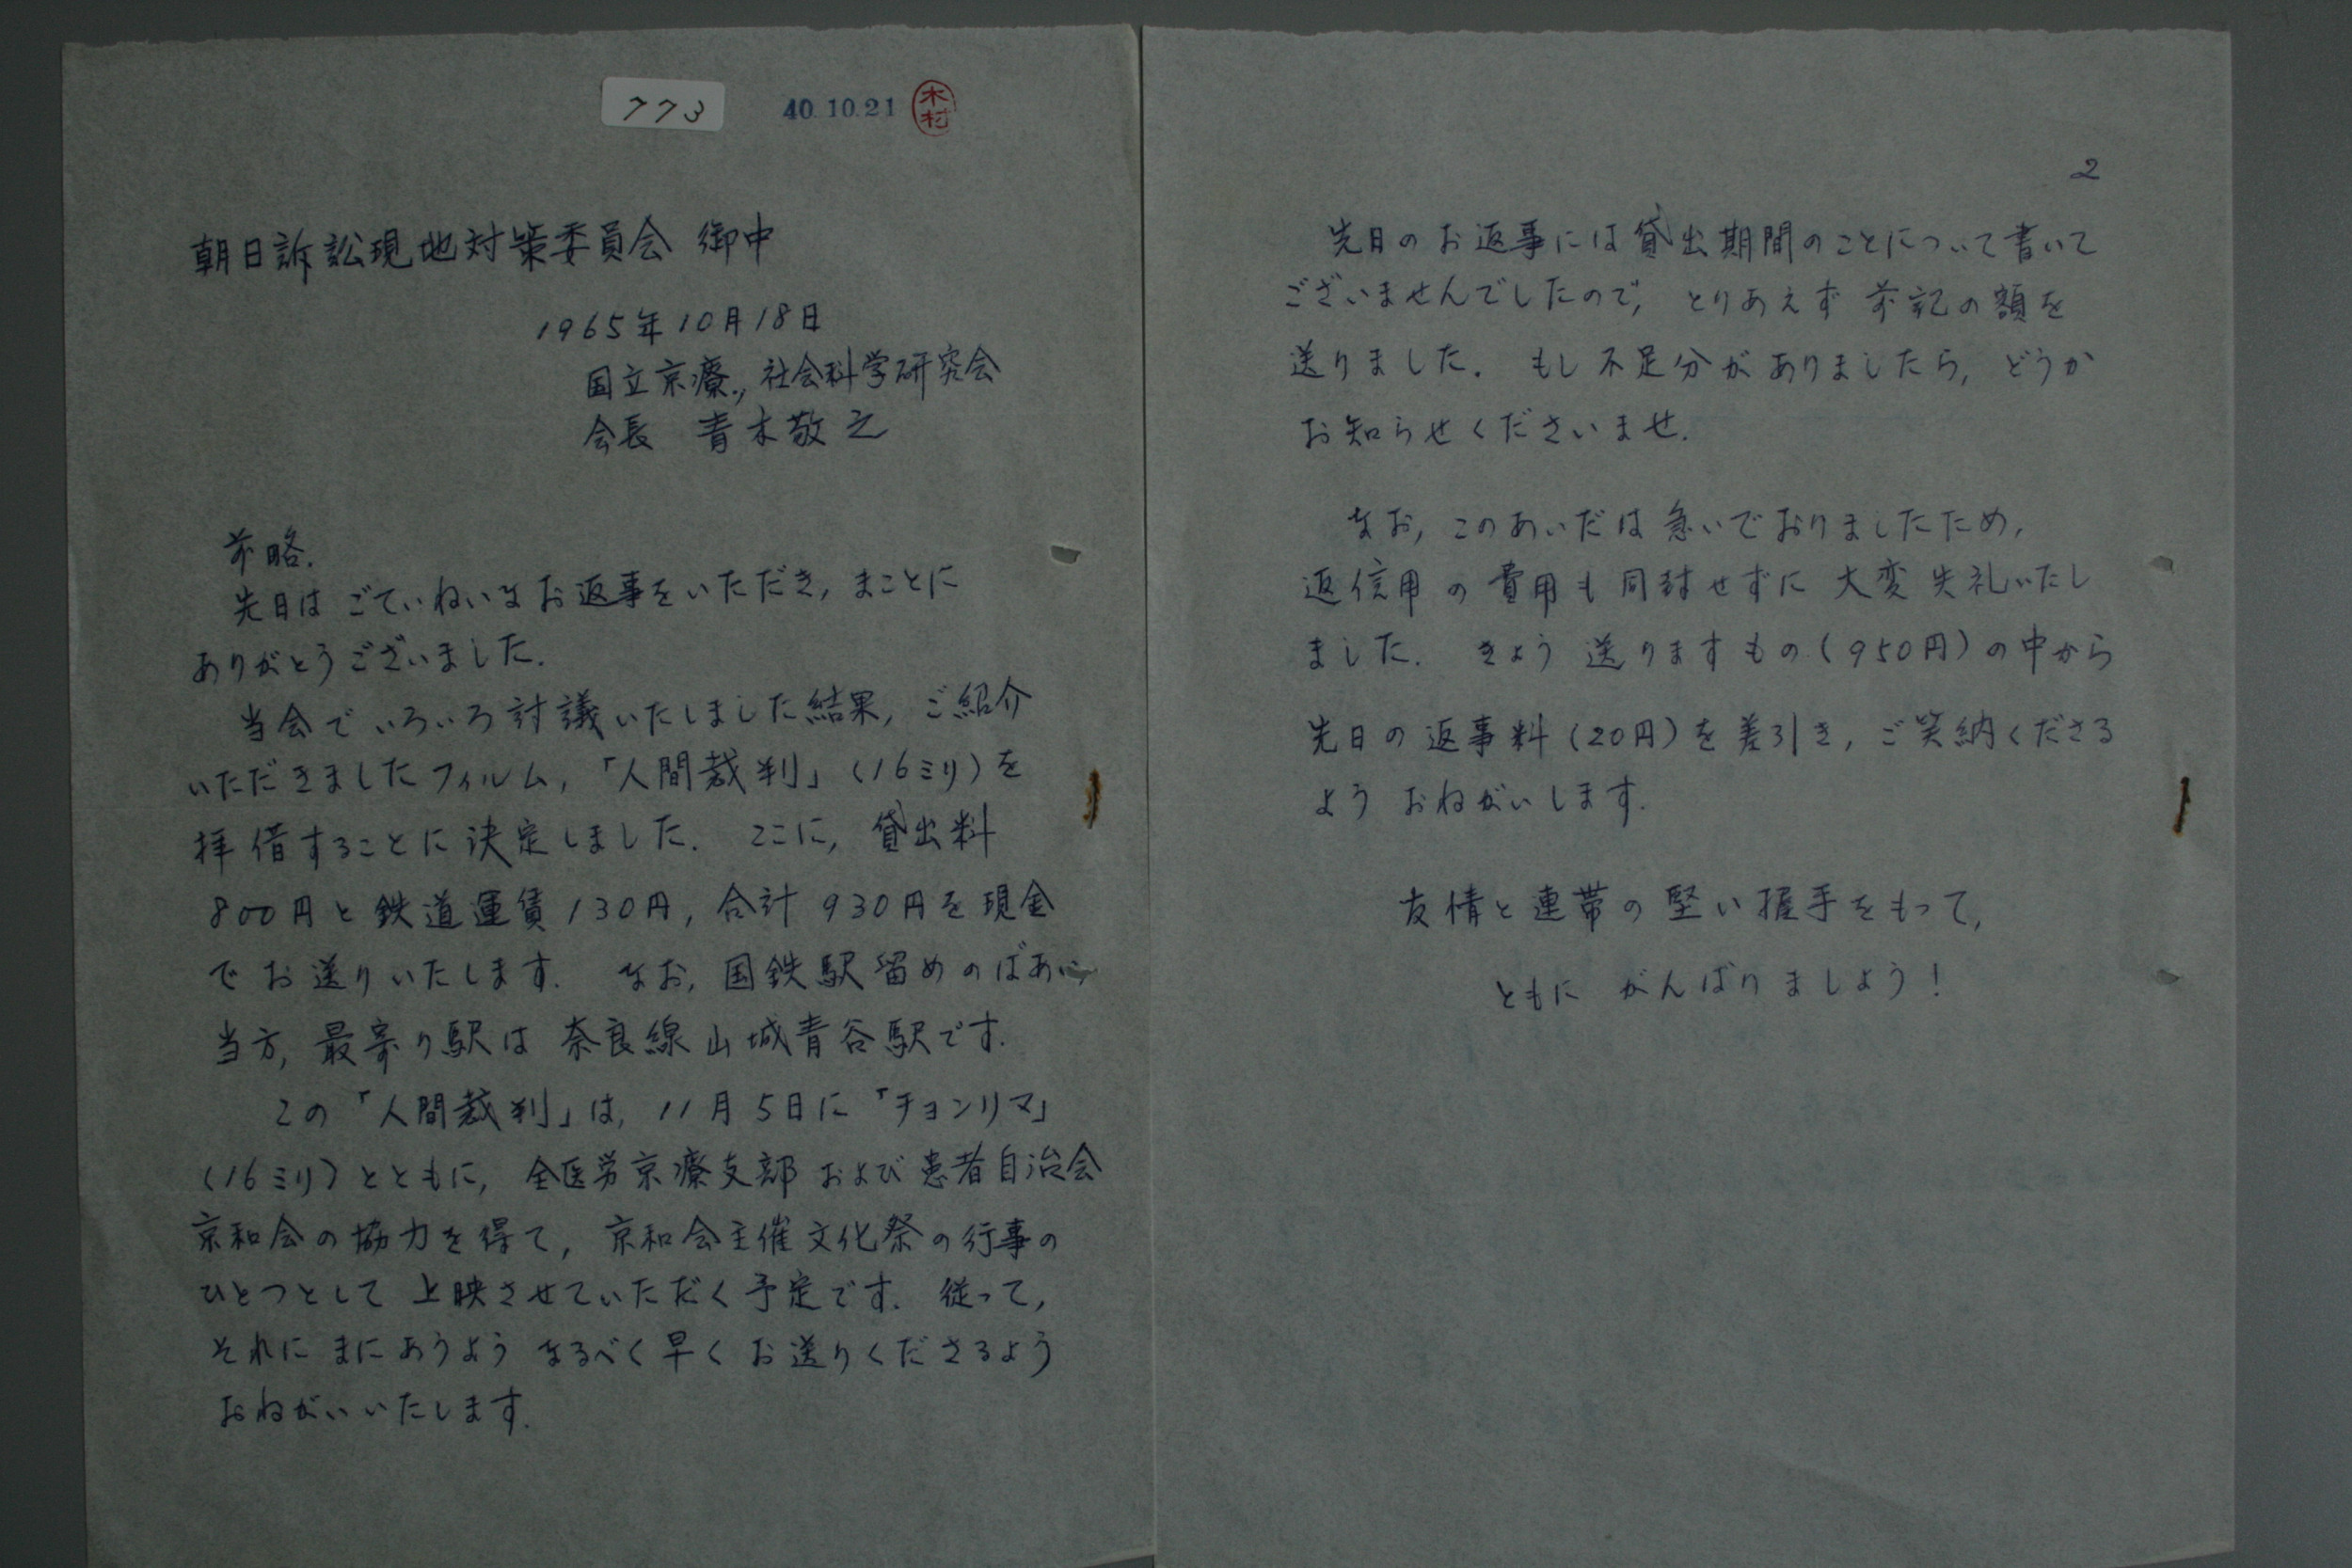 773
40.10.21
木村
朝日訴訟現地対策委員会 御中
1965年10月18日
国立京療., 社会科学研究会
会長 青木敬之
前略.
先日はごていねいなお返事をいただき, まことに
ありがとうございました.
当会でいろいろ討議いたしました結果, ご紹介
いただきましたフィルム, 「人間裁判」(16ミリ)を
拝借することに決定しました. ここに, 貸出料
800円と鉄道運賃130円, 合計930円を現金
でお送りいたします. なお, 国鉄駅留めのばあい
当方, 最寄り駅は奈良線山城青谷駅です.
この「人間裁判」は, 11月5日に「チョンリマ」
(16ミリ)とともに, 全医労京療支部および患者自治会
京和会の協力を得て, 京和会主催文化祭の行事の
ひとつとして上映させていただく予定です. 従って,
それにまにあうようなるべく早くお送りくださるよう
おねがいいたします.
2
先日のお返事には貸出期間のことについて書いて
ございませんでしたので, とりあえず前記の額を
送りました. もし不足分がありましたら, どうか
お知らせくださいませ.
なお, このあいだは急いでおりましたため,
返信用の費用も同封せずに大変失礼いたし
ました. きょう送りますもの(950円)の中から
先日の返事料(20円)を差引き, ご笑納くださる
ようおねがいします.
友情と連帯の堅い握手をもって,
ともにがんばりましょう!